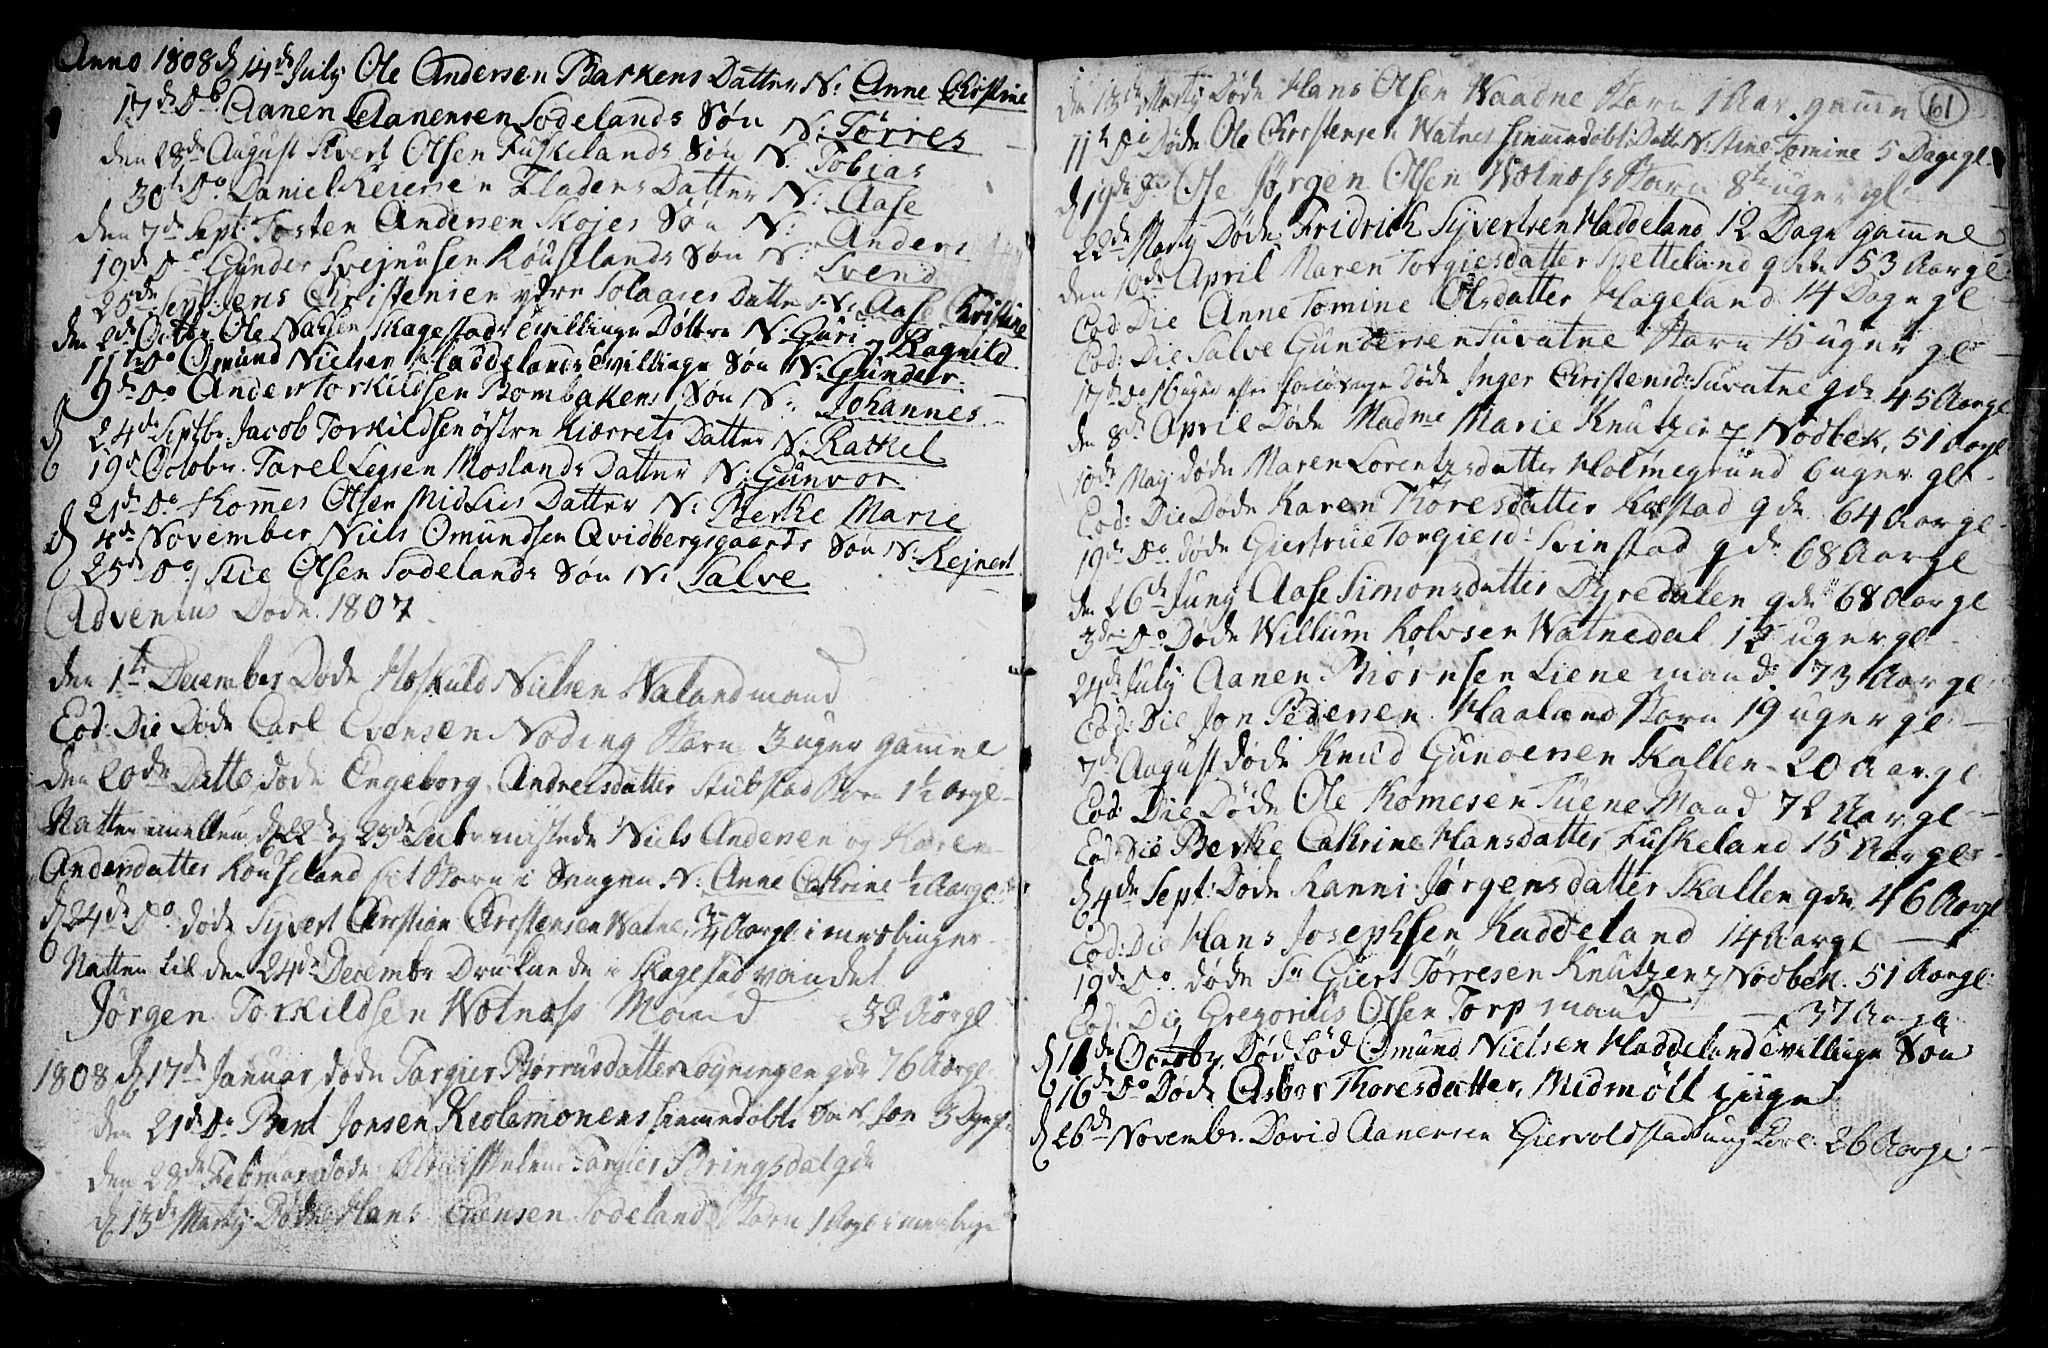 Anno 1808 d 14de July Ole Andersen Barkens Datter N: Anne Christine
17de Do Aanen Aanensen Sodelands Søn N: Tørres
den 28de August Sivert Olsen Fuskelands Søn N: Tobias
30te Do Daniel Reiersen Fladens Datter N: Aase
den 7de Sept: Tosten Andersen Skojes Søn N: Anders
19de Do Gunder Svejnusen Røuselands Søn N: Svend
25de Sept: Jens Christensen ydre Solaases Datter N: Aase Christine
den 2de Octbr Ole Skagestads tvillinge Døttre N: Guri og Ragnild
11te Do Omund Nielsen Haddelands tvillinge Søn N: Gunder
9de Do Anders Torkildsen Bombakens Søn N: Johannes
d 24de Septbr Jacob Torkildsen østre Kiærrets Datter N: Rachel
19de Octobr. Tarel Legsen Moslands Datter N: Gunvor
21de Do Thommes Olsen Midlies Datter N: Berthe Marie
d 4de November Niels Omundsen Qvidbergsgaards Søn N: Rejnert
25de Do Stie Olsen Sodelands Søn N: Salve
Adventus Døde 1807
den 1te December Døde Hoskuld Nielsen Valand mand
Eod: Die Døde Carl Evensen Noding Barn 3 uger gamme
den 20de Ditto døde Engeborg Andreisdatter Stubstad Barn 1½ Aar gl
Natten imellem d 22de og 23de mistede Niels Andersen og Karen
Andersdatter Rouseland sit Barn i Sengen N: Anne Cathrine ½ Aar gl
d 24de Do døde Syvert Christian Christensen Watne ¾ Aar gl i meslinger
Natten til den 24de Decembr Druknede i Skagestadvandet
Jørgen Torkildsen Wolnæss Mand 32 Aar gl
1808 d 17de Januar døde Targier Børrusdatter Løgningen gde 76 Aar gl
den 21de Do Bent Jonsen Kiolemonens hiemmedøbte Søn N. Jon 3 Dage gl
den 28de Februar døde Targier Bringsdal gde
d 13de Marty Døde Hans Evensen Sodeland Barn 1 Aar gl i meslinge
61
den 13de Marty Døde Hans Olsen Waadne Barn 1 Aar gamme
17de Do Døde Ole Christensen Watnes hiemmedøbte Datter N: Stine Tomine 5 Dage gl
d 19de Do Jørgen Olsen Wolnæss Barn 8te uger gl
22de Marty Døde Fridrich Syvertsen Haddeland 12 Dage gamme
den 10de April Maren Torgiersdatter Spetteland gde 53 Aar gl
Eod: Die Anne Tomine Olsdatter Hageland 14 Dage gl
Eod: Die Salve Gundersen Suvatne Barn 15 uger gl
17de Do Døde Inger Christensd: Suvatne gde 45 Aar gl
den 8de April Døde Madme Marie Knutzen Nodbek, 51 Aar gl
10de Maij døde Maren Lorentzdatter Holmegrund 6 uger gl
Eod: Die Døde Karen Thoresdatter Kolstad gde 64 Aar gl
19de Do døde Giertrue Torgiersd: Svinstad gde 68 Aar gl
den 26de Juny Aase Simonsdatter Dyredalen gde 68 Aar gl
3de Do Døde Willum Rolvsen Watnedal 12 uger gl
24de July Aanen Biørnsen Liene mand 73 Aar gl
Eod: Die Jon Pedersen Haaland Barn 19 uger gl
7de August døde Knud Gundersen Skallen 20 Aar gl
Eod: Die Døde Ole Thomesen Tuene Mand 72 Aar gl
Eod: Die Berthe Cathrine Hansdatter Fuskeland 15 Aar gl
d 4de Sept: Døde Ranni Jørgensdatter Skallen gde 46 Aar gl
Eod: Die Hans Josephsen Haddeland 14 Aar gl
19de Do døde Sr Giert Tørresen Knutzen Nodbek 51 Aar gl
Eod: Die Gregorius Olsen Torp mand 37 Aar gl
d 11de Octobr. Død fød Omund Nielsen Haddeland tvillinge Søn
16de Do Døde Asbor Thoresdatter, Midmølt piige
d 26de Novembr. David Aanensen Giervoldstad ung Karl: 26 Aar gl